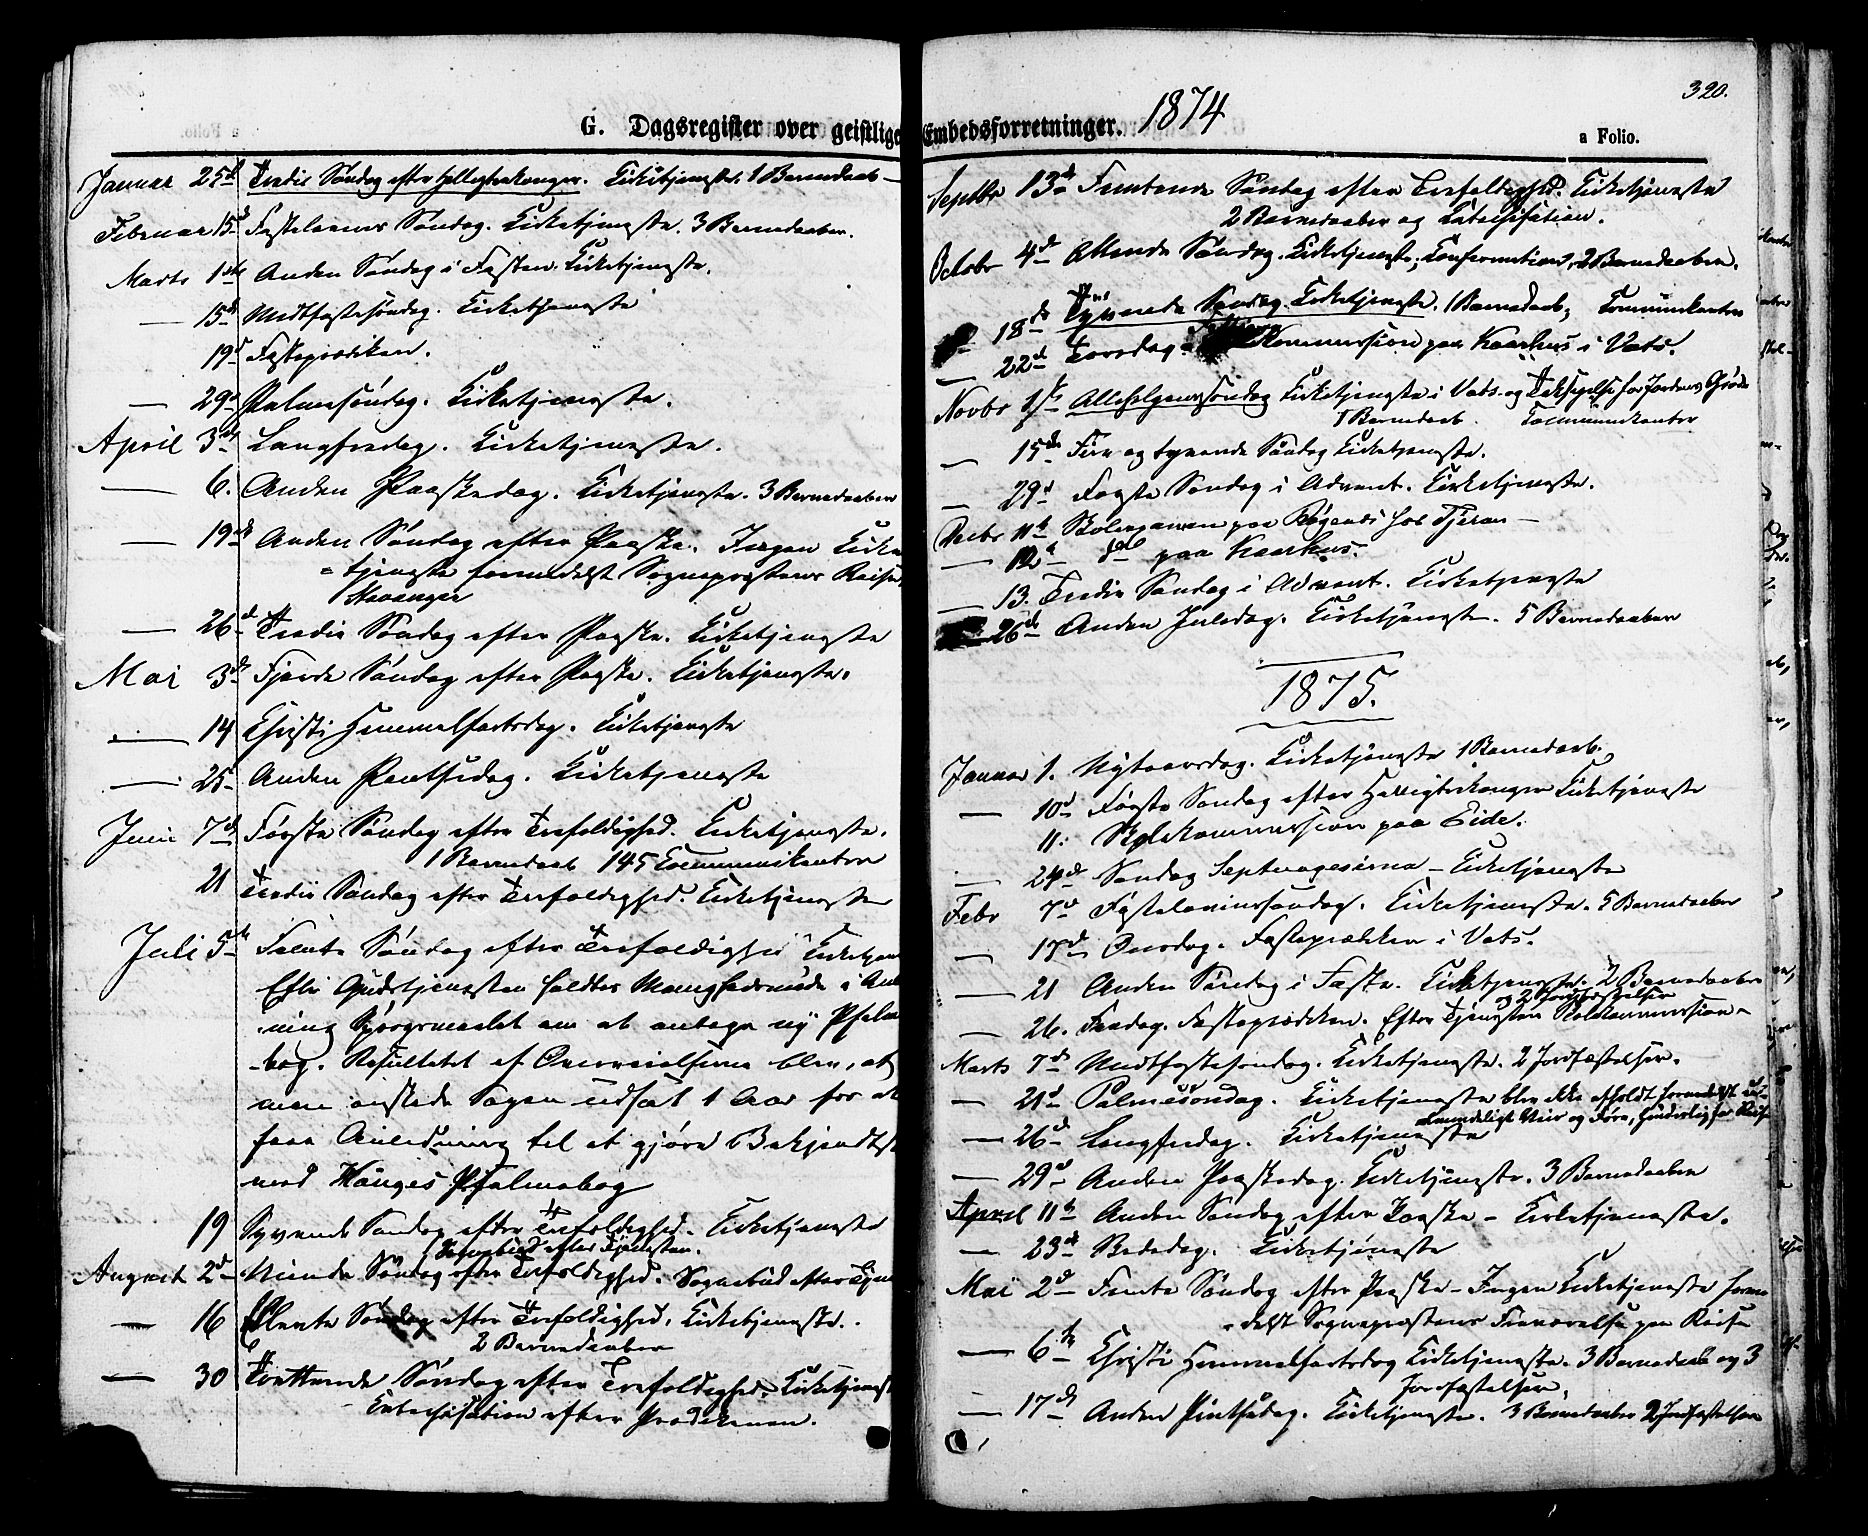 G. Dagsregister over geistlige
Januar 25d Tredie Søndag efter Helligtrekonger. Kirketjeneste. 1 Barnedaab —
Februar 15d Fastelavns Søndag. Kirketjeneste. 3 Barnedaaber.
Marts 1ste Anden Søndag i Fasten. Kirketjeneste.
— 15d Midtfastesøndag. Kirketjeneste
19d Fasteprædiken.
— 29d Palmesøndag. Kirketjeneste.
April 3die Langfredag. Kirketjeneste.
— 6. Anden Paaskedag. Kirketjeneste. 3 Barnedaaber
— 19de Anden Søndag efter Paaske. Ingen Kirke
= tjeneste formedelst Sognepræstens Reise
Stavanger
— 26d Tredie Søndag efter Paaske. Kirketjeneste
Mai 3d Fjerde Søndag efter Paaske. Kirketjeneste.
— 14 Christi Himmelfartsdag. Kirketjeneste
— 25 Anden Pintsedag. Kirketjeneste
Juni 7d Første Søndag efter Trefoldighed. Kirketjeneste.
1 Barnedaab 145 Communikanter
21 Tredie Søndag efter Trefoldighed. Kirketjeneste
Juli 5te Femte Søndag efter Trefoldighed Kirketjen
Efter Gudstjenesten holdtes Menighedsmøde i An
ning Spørgsmaalet om at antage ny Psalme
-bog. Resultatet af blev, at
man ønskede Sagen udsat 1 Aar for at
faae Anledning til at gjøre Bekjendtsk
med Hauges Psalmebog
19 Syvende Søndag efter Trefoldighed. Kirketjeneste
Sognebud efter Tjenesten.
August 2d Niende Søndag efter Trefoldighed. Sognebud efter Tjen
— 16 Ellevte Søndag efter Trefoldighed. Kirketjeneste.
2 Barnedaaber
— 30 Trettende Søndag efter Trefoldighed. Kirketjenest
- Catechisation efter Prædikenen.
320.
Embedsforretninger. 1874
a Folio.
Septbr 13de Femtende Søndag efter Trefoldighed. Kirketjeneste
2 Barnedaaber og Catechisation.
Octobr 4d Attende Søndag. Kirketjeneste, Confirmation, 2 Barnedaaber.
18de Tyvende Søndag. Kirketjeneste. 1 Barnedaab, Communikanter
— 22d Torsdag. kommission paa Kaarhus i Vats.
Novbr 1ste Allehelgenssøndag Kirketjeneste i Vats og Taksigelse for Jordens Grøde
1 Barnedaab. Communikanter
— 15de Fire og tyvende Søndag Kirketjeneste.
— 29d Første Søndag i Advent. Kirketjeneste.
Decbr 11te Skoleexamen paa hos —
— 12d do paa Kaarhus.
— 13. Tredie Søndag i Advent. Kirketjeneste
26de Anden Juledag. Kirketjeneste. 5 Barnedaaber
1875.
Januar 1. Nytaarsdag. Kirketjeneste 1 Barnedaab.
— 10d Første Søndag efter Helligtrekonger Kirketjeneste
11. Skolekommission paa Eide.
— 24de Søndag Septuagesima — Kirketjeneste
Febr 7d Fastelavnssøndag. Kirketjeneste. 5 Barnedaaber
— 17d Onsdag. Fasteprædiken i Vats.
— 21 Anden Søndag i Faste. Kirketjeneste. 2 Barnedaaber
og 2 Jordfæstelser
— 26. Fredag. Fasteprædiken. Efter Tjenesten Skolekommission —
Marts 7de Midtfastesøndag. Kirketjeneste. 2 Jordfæstelser.
— 21d Palmesøndag. Kirketjeneste blev ikke afholdt formedelst
Veir og Føre, for Reise
— 26d Langfredag. Kirketjeneste
— 29d Anden Paaskedag. Kirketjeneste. 3 Barnedaaber
April 11te Anden Søndag efter Paaske — Kirketjeneste.
— 23d Bededag. Kirketjeneste
Mai 2d Femte Søndag efter Paaske — Ingen Kirketjeneste form
= delst Sognepræstens Fraværelse paa Reise
— 6te Christi Himmelfartsdag Kirketjeneste. 3 Barnedaab og 3
Jordfæstelser.
— 17de Anden Pintsedag. Kirketjeneste. 3 Barnedaaber 2 Jordfæstelser